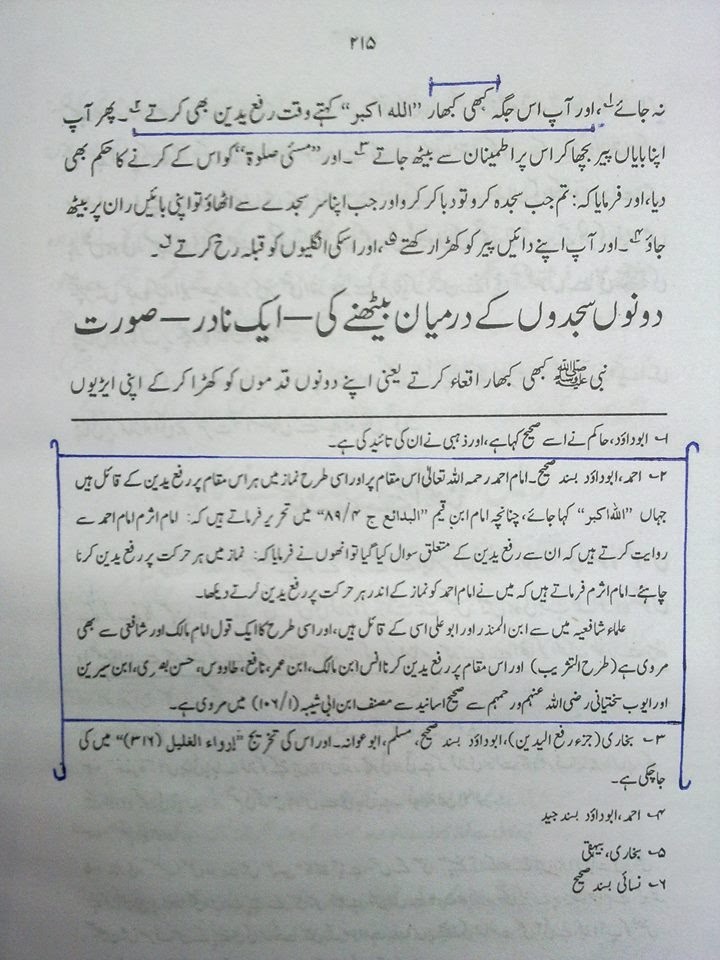 ۲۱۵
نہ جائے۱؎، اور آپ اس جگہ کبھی کبھار ”اللہ اکبر“ کہتے وقت رفع یدین بھی کرتے۲؎۔ پھر آپ
اپنا بایاں پیر بچھا کر اس پر اطمینان سے بیٹھ جاتے۳؎۔ اور ”مسئ صلوۃ“ کو اس کے کرنے کا حکم بھی
دیا، اور فرمایا کہ: تم جب سجدہ کرو تو دبا کر کرو اور جب اپنا سر سجدے سے اٹھاؤ تو اپنی بائیں ران پر بیٹھ
جاؤ۴؎۔ اور آپ اپنے دائیں پیر کو کھڑا رکھتے۵؎، اور اسکی انگلیوں کو قبلہ رخ کرتے۶؎۔
دونوں سجدوں کے درمیان بیٹھنے کی – ایک نادر – صورت
نبی ﷺ کبھی کبھار اقعاء کرتے یعنی اپنے دونوں قدموں کو کھڑا کر کے اپنی ایڑیوں
۱؎ ابوداؤد، حاکم نے اسے صحیح کہا ہے، اور ذہبی نے ان کی تائید کی ہے۔
۲؎ احمد، ابوداؤد بسند صحیح۔ امام احمد رحمہ اللہ تعالیٰ اس مقام پر اور اسی طرح نماز میں ہر اس مقام پر رفع یدین کے قائل ہیں
جہاں ”اللہ اکبر“ کہا جائے، چنانچہ امام ابن قیم ”البدائع ج ۸۹/۴“ میں تحریر فرماتے ہیں کہ: امام اثرم امام احمد سے
روایت کرتے ہیں کہ ان سے رفع یدین کے متعلق سوال کیا گیا تو انھوں نے فرمایا کہ: نماز میں ہر حرکت پر رفع یدین کرنا
چاہئے۔ امام اثرم فرماتے ہیں کہ میں نے امام احمد کو نماز کے اندر ہر حرکت پر رفع یدین کرتے دیکھا۔
علماء شافعیہ میں سے ابن المنذر اور ابو علی اسی کے قائل ہیں، اور اسی طرح کا ایک قول امام مالک اور شافعی سے بھی
مروی ہے (طرح التثریب) اور اس مقام پر رفع یدین کرنا انس ابن مالک، ابن عمر، نافع، طاووس، حسن بصری، ابن سیرین
اور ایوب سختیانی رضی اللہ عنہم ورحمہم سے صحیح اسانید سے مصنف ابن ابی شیبہ (۱۰۶/۱) میں مروی ہے۔
۳؎ بخاری (جزء رفع الیدین)، ابوداؤد بسند صحیح، مسلم، ابوعوانہ۔ اور اس کی تخریج ”إرواء الغليل (۳۱۶)“ میں کی
جا چکی ہے۔
۴؎ احمد، ابوداؤد بسند جید
۵؎ بخاری، بیہقی
۶؎ نسائی بسند صحیح